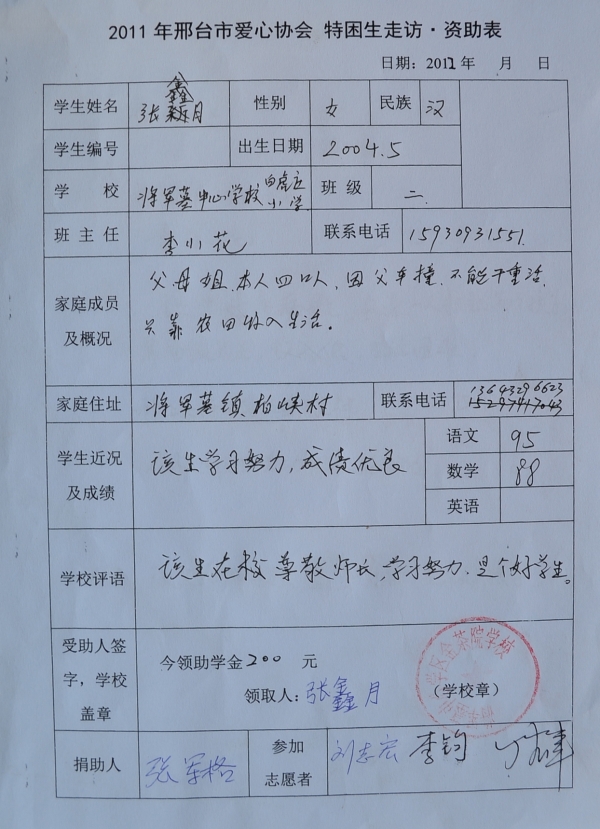 2011年邢台市爱心协会 特困生走访·资助表
日期：2012年 月 日
学生姓名 张鑫月 性别 女 民族 汉
学生编号 出生日期 2004.5
学 校 将军墓中心学校白虎庄小学 班级 二
班主任 李小花 联系电话 15930931551
家庭成员及概况 父母姐、本人四口人，因父车撞，不能干重活，
只靠农田收入生活。
家庭住址 将军墓镇柏峡村 联系电话 13643296623
15297417043
学生近况及成绩 该生学习努力，成绩优良
语文 95
数学 88
英语
学校评语 该生在校尊敬师长，学习努力，是个好学生。
受助人签字，学校盖章
今领助学金200 元
领取人：张鑫月 （学校章）
捐助人 张军格 参加志愿者 刘志宏 李钧